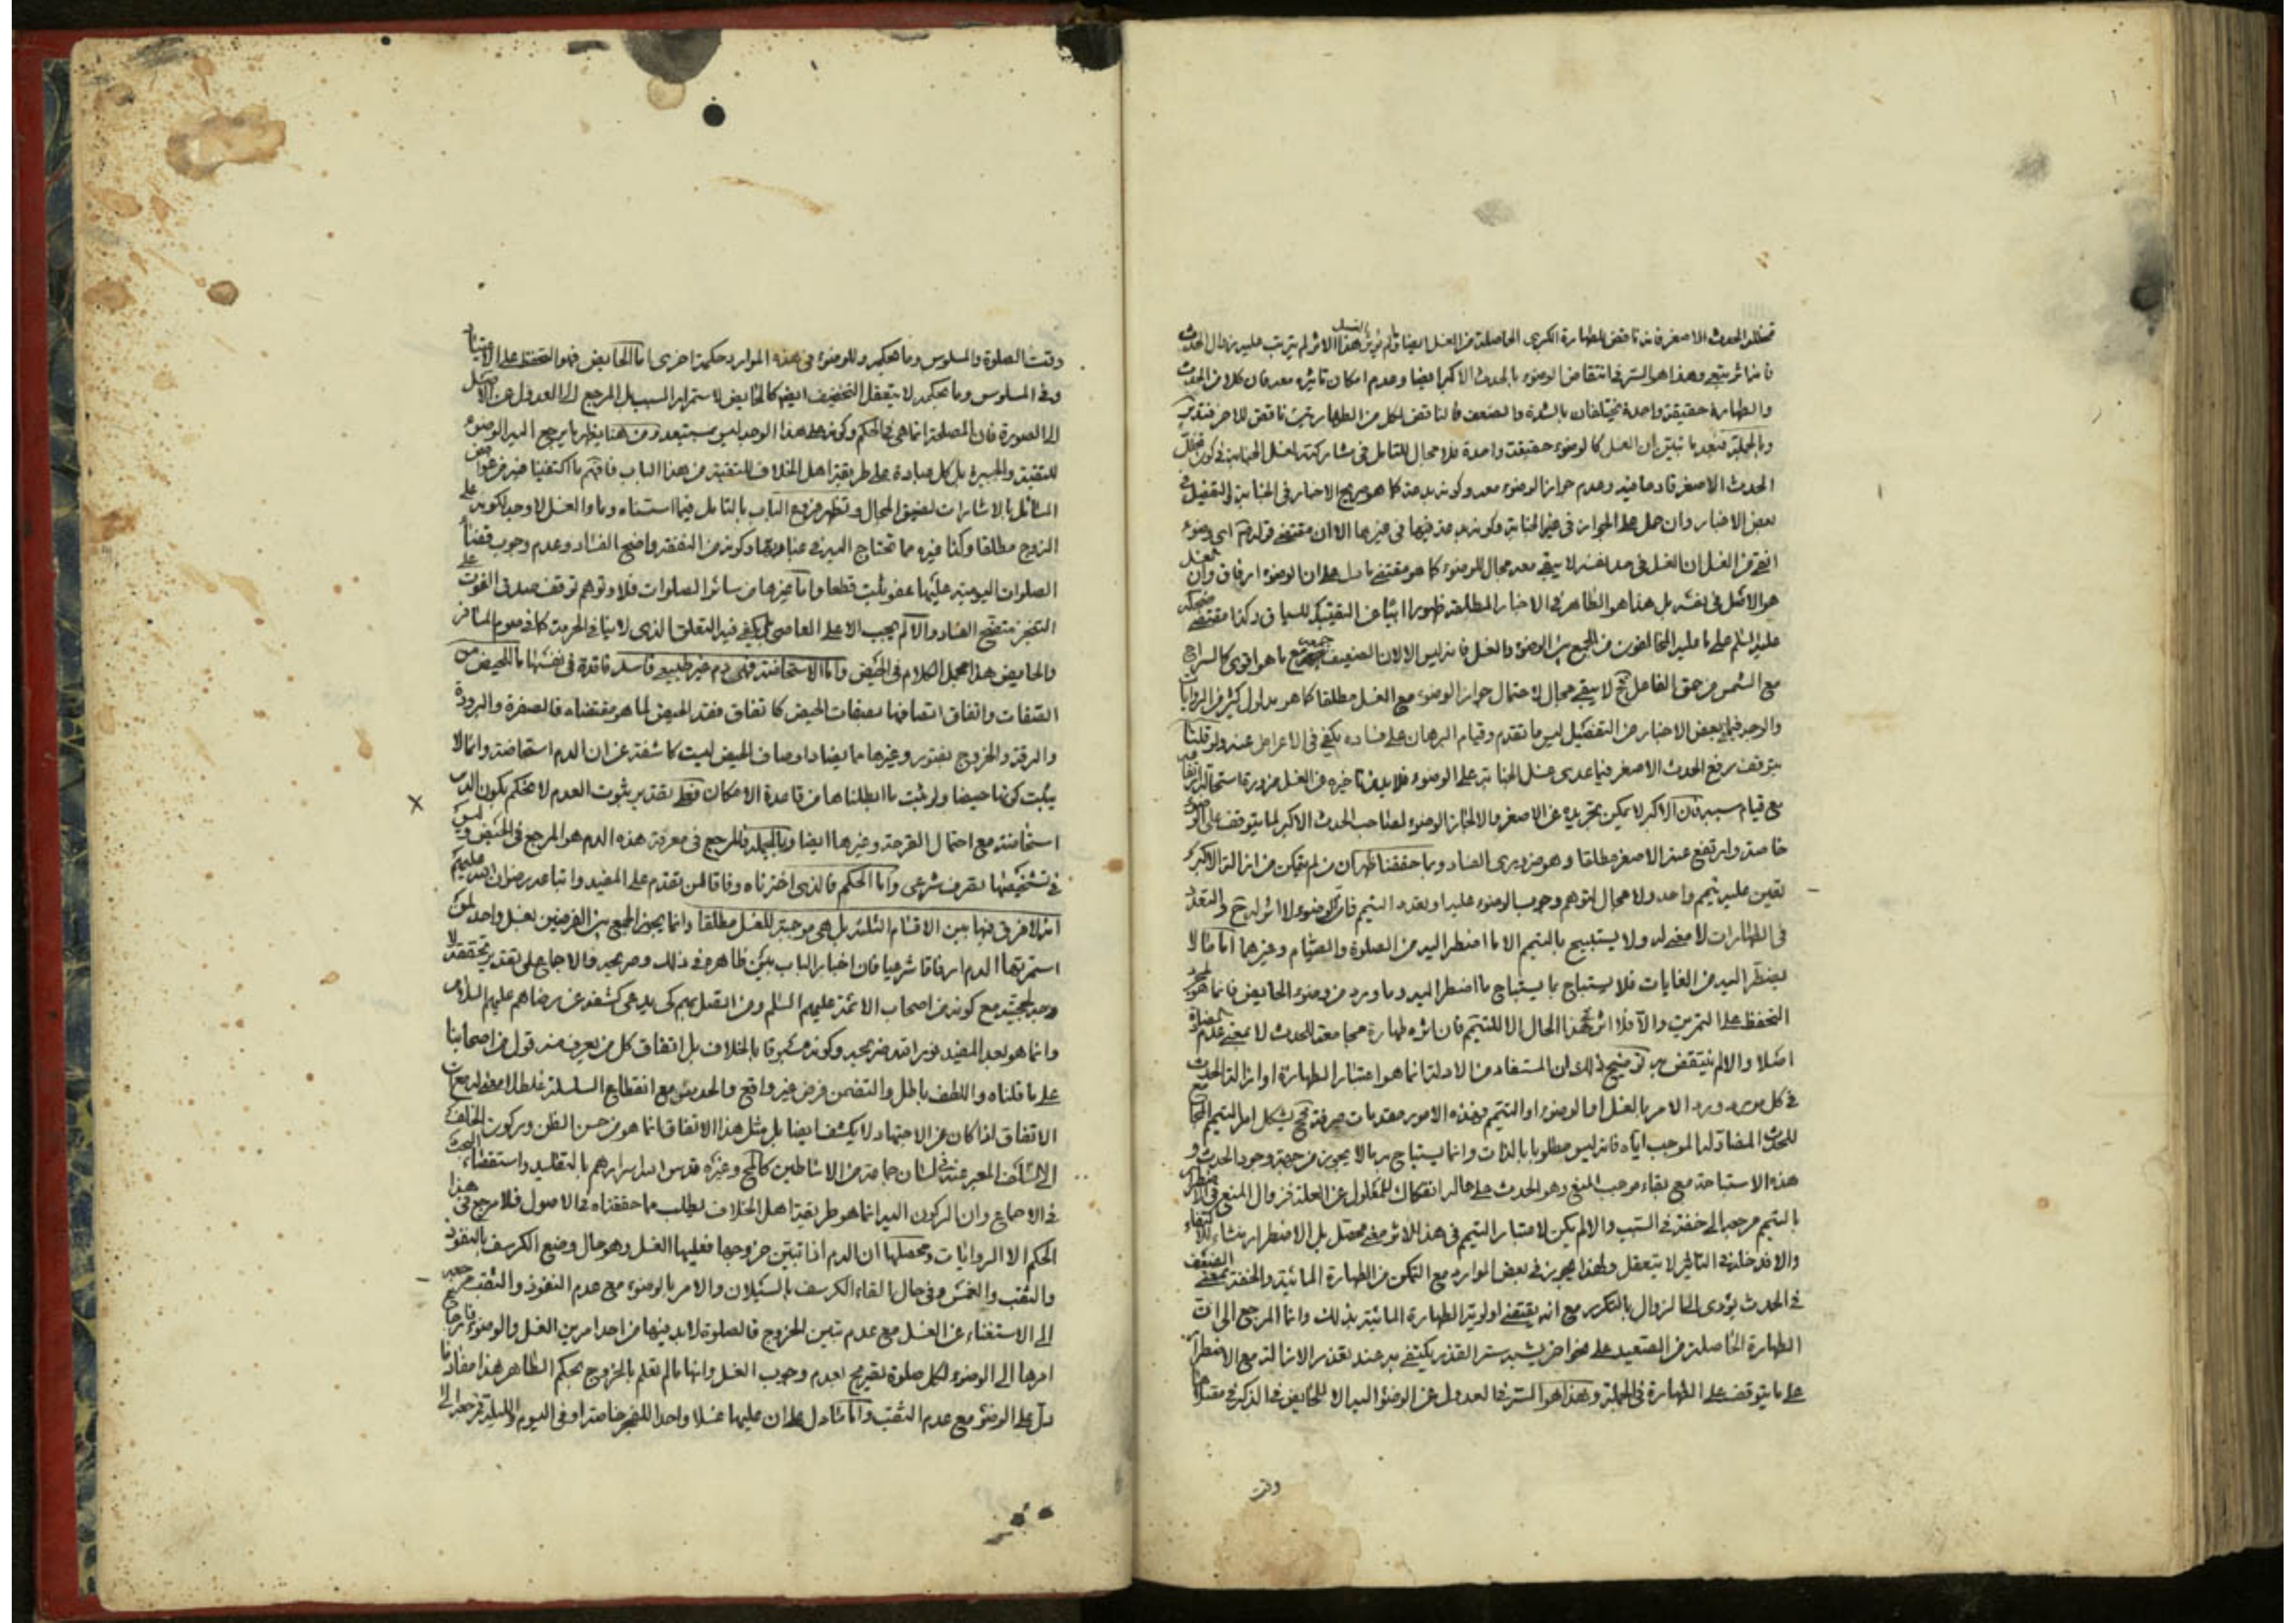 الحدث الاصغر فانه ناقض للطهارة الكبرى الحاصلة من الغسل ايضا ولم هذا الاثر لم يترتب عليه زوال الحدث
وهذا هو السر في انتقاض الوضوء بالحدث الاكبر ايضا وعدم امكان تاثيره معه فان كلا من الحدث
والطهارة حقيقة واحدة يختلفان بالشدة والضعف فالناقض لكل من الطهارتين ناقض للاخر فتدبر
وبالجملة فبعد ما تبين ان الغسل كالوضوء حقيقت واحدة فلا مجال للتامل في مشاركته لغسل الجنابة في كون
الحدث الاصغر قادحا فيه وعدم جواز الوضوء معه وكونه بدعة كما هو صريح الاخبار في الجنابة والتفصيل في
بعض الاخبار وان حمل على الجواز في غير الجنابة وكونه بدعة فيها في غيرها الا ان مقتضى قولهم اى وضوء
انقى من الغسل ان الغسل في حد نفسه لا يبقى معه مجال للوضوء كما هو مقتضى ما دل على ان الوضوء ارفاق وان الغسل
هو الاصل في نفسه بل هذا هو الظاهر في الاخبار المطلقة ظهورا ابيا عن التقييد للسياق وكذا مقتضى
عليه السلم على ما عليه المخالفون من الجمع بين الوضوء والغسل فانه ليس الا لان الضعيف مع ما هو اقوى كالسراج
مع الشمس من حق الفاعل فح لا يبقى مجال لاحتمال جواز الوضوء مع الغسل مطلقا كما هو مدلول كثير من الروايات
والوجه فيما بعض الاخبار من التفصيل ليس ما تقدم وقيام البرهان على فساده يكفي في الاعراض عنه ولو قلنا
بتوقف رفع الحدث الاصغر فيما عدى غسل الجنابة على الوضوء فلا بد من تاخيره عن الغسل ضرورة استحالة ارتفاعه
مع قيام سببه فان الاكبر لا يمكن تجريده عن الاصغر والا لجاز الوضوء لصاحب الحدث الاكبر لما يتوقف على الوضوء
خاصة وارتفع عنه الاصغر مطلقا وهو ضروري الفساد وبما حققنا ظهر ان من لم يتمكن من ازالة الاكبر
تعين عليه تيمم واحد ولا مجال لتوهم وجوب الوضوء عليه او تعدد التيمم فان الوضوء لا اثر له ح والتعدد
في الطهارات لا معنى له ولا يستبيح بالتيمم الا ما اضطر اليه من الصلوة والصيام وغيرهما اما ما لا
يضطر اليه من الغايات فلا يستباح بما يستباح ما اضطر اليه وما ورد من وضوء الحايض فانما هو لمجرد
التحفظ على التمرين والا فلا اثر لهذا الحال الا للتيمم فان اثره طهارة مجامعة للحدث لا بمعنى عدم المضادة
اصلا والا لم ينتقض به توضيح ذلك ان المستفاد من الادلة انما هو اعتبار الطهارة او ازالة الحدث
في كل مورد ورد الامر بالغسل او الوضوء او التيمم فهذه الامور مقدمات صرفة فح يشكل امر التيمم المجامع
للحدث المضاد لها لموجب اياه فانه ليس مطلوبا بالذات وانما يستباح به ما لا يجوز من جهة وجود الحدث و
هذه الاستباحة مع بقاء موجب المنع وهو الحدث على حاله انفكاك للمعلول عن العلة فزوال المنع في الاضطرار
بالتيمم مرجعه الى خفة في السبب والا لم يكن لاعتبار التيمم في هذا الاثر معنى محصل بل الاضطرار منشاء للاكتفاء
والا فدخله في التاثير لا يتعقل ولهذا يجوز في بعض الموارد مع التمكن من الطهارة المائية والخفة بمعنى الضعف
في الحدث يؤدى الى الزوال بالتكرير مع انه يقتضى اولوية الطهارة المائية بذلك وانما المرجع الى ان
الطهارة الحاصلة من الصعيد على نحو اخر يشبه ستر القذر يكتفى به عند تعذر الازالة مع الاضطرار
على ما يتوقف على الطهارة في الجملة وهذا هو السر في العدول عن الوضوء اليه الا للحايض فالذكر في مقدار
وقت
وقت الصلوة والمسلوس وما هكمه وللوضوء في هذه الموارد حكمة اخرى اما الحايض فهو التحفظ على الاعتياد
وفي المسلوس وما بحكمه لا يتعقل التخفيف ايضا كالحايض لاستمرار السبب بل المرجع الى العدول عن الاصل
الى الصورة فان المصلحة انما هي في الحكم وكونه على هذا الوجه ليس بمستبعد ومن هنا يظهر ما يرجع اليه الوضوء
للتقية والجبيرة بل كل عبادة على طريقة اهل الخلاف للتقية من هذا الباب فافهم ما اكتفينا من غوامض
المسائل بالاشارات لضيق المجال وتظهر فروع الباب بالتامل فيما اسسناه وماء الغسل لا وجه لكونه على
الزوج مطلقا وكذا غيره مما تحتاج اليه في عباداتها وكونه من النفقة واضح الفساد وعدم وجوب قضاء
الصلوات اليومية عليها عفو يثبت قطعا واما غيرها من سائر الصلوات فلا وتوهم توقف صدق الفوت على
التنجز متضح الفساد والا لم يجب الا على العاصى بل يكفى فيه التعلق الذى لا ينافى الحرمة كما في صوم المسافر
والحايض هذا مجمل الكلام في الحيض واما الاستحاضة فهى دم غير طبيعى فاسد فاقدة في نفسها ما للحيض من
الصفات واتفاق اتصافها بصفات الحيض كاتفاق فقد الحيض لما هو مقتضاه فالصفرة والبرودة
والرقة والخروج بفتور وغيرها مما يضاد اوصاف الحيض ليست كاشفة عن ان الدم استحاضة وانما لا
يثبت كونها حيضا ولو ثبت ما ابطلناها من قاعدة الامكان فعلى تقدير ثبوت العدم لا نحكم بكون الدم
استحاضة مع احتمال القرحة وغيرها ايضا وبالجملة فالمرجع في معرفة هذه الدم هو المرجع في الحيض وليس
في تشخيصها تصرف شرعى واما الحكم فالذى اخترناه وفاقا لمن تقدم على المفيد واتباعه رضوان الله عليهم
انه لا فرق فيها بين الاقسام الثلثة بل هى موجبة للغسل مطلقا وانما يجوز الجمع بين الفرضين بغسل واحد لمن
استمر بها الدم ارفاقا شرعيا فان اخبار الباب بين ظاهرة في ذلك وصريحه فالاجماع على تقدير تحققه لا
وجه لحجيته مع كونه من اصحاب الائمة عليهم السلم ومن اتصل بهم كى يدعى كشفه عن رضاهم عليهم السلام
وانما هو بعد المفيد فوراثته غير مجد وكونه مسبوقا بالخلاف بل اتفاق كل من يعرف منه قول من اصحابنا
على ما قلناه واللطف باطل والتضمن فرض غير واقع والحدس مع انقطاع السلسلة غلط لا معنى له مع ان
الاتفاق اذا كان عن الاجتهاد لا يكشف ايضا بل مثل هذا الاتفاق انما هو من حسن الظن وركون الخلف
الى السلف المعبر عنه في لسان جماعة من الاساطين كالحلى وغيره قدس الله اسرارهم بالتقليد واستقصاء البحث
في الاجماع وان الركون اليه انما هو طريقة اهل الخلاف يطلب مما حققناه في الاصول فلا مرجع في هذا
الحكم الا الروايات ومحصلها ان الدم اذا تبين خروجها فعليها الغسل وهو حال وضع الكرسف بالنفوذ
والثقب والغمس وفي حال القاء الكرسف بالسيلان والامر بالوضوء مع عدم النفوذ والثقب مرجعه
الى الاستغناء عن الغسل مع عدم تبين الخروج فالصلوة لا بد فيها من احد امرين الغسل والوضوء فارجاع
امرها الى الوضوء لكل صلوة تصريح بعدم وجوب الغسل وانها ما لم تعلم بالخروج بحكم الظاهر هذا مفاد ما
دل على الوضوء مع عدم الثقب واما ما دل على ان عليها غسلا واحدا للفجر خاصة او في اليوم والليلة فمرجعه الى